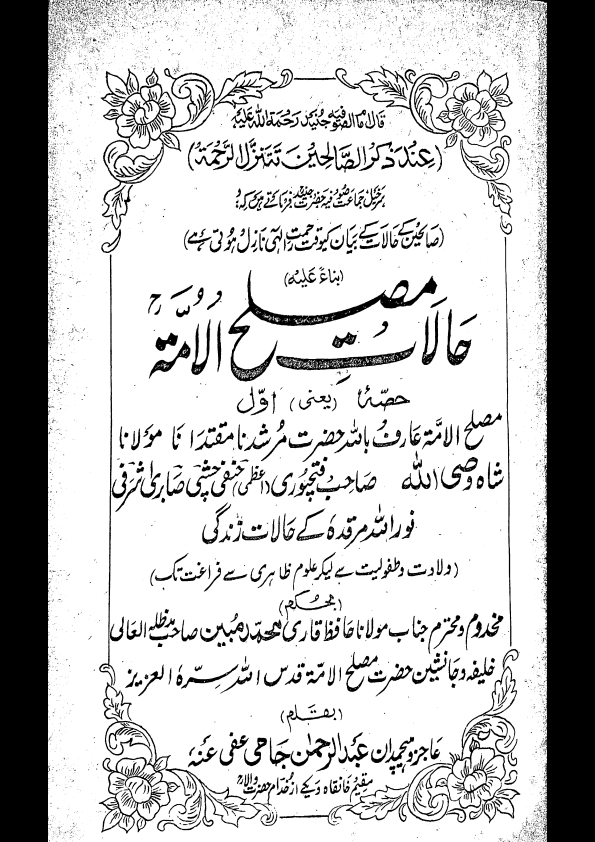 قال امام الصوفیہ جنید رحمۃ اللہ علیہ
(عند ذکر الصالحین تتنزل الرحمۃ)
سرخیل جماعت صوفیہ حضرت جنیدؒ فرماتے ہیں کہ:
(صالحین کے حالات کے بیان کیوقت رحمت الٰہی نازل ہوتی ہے)
(بناءً علیہ)
حالات مصلح الامۃ
حصہ (یعنی) اول
مصلح الامۃ عارف باللہ حضرت مرشدنا مقتدانا مولانا
شاہ وصی اللہ صاحب فتحپوری (اعظمی) حنفی چشتی صابری اشرفی
نور اللہ مرقدہ کے حالات زندگی
(ولادت و طفولیت سے لیکر علوم ظاہری سے فراغت تک)
(بحکم)
مخدوم و محترم جناب مولانا حافظ قاری محمد مبین صاحب مدظلہ العالی
خلیفہ و جانشین حضرت مصلح الامۃ قدس اللہ سرہٗ العزیز
(بقلم)
عاجز و ہیچمدان عبدالرحمٰن جامی عفی عنہ
مقیم خانقاہ ویکے از خدام حضرت والاؒ